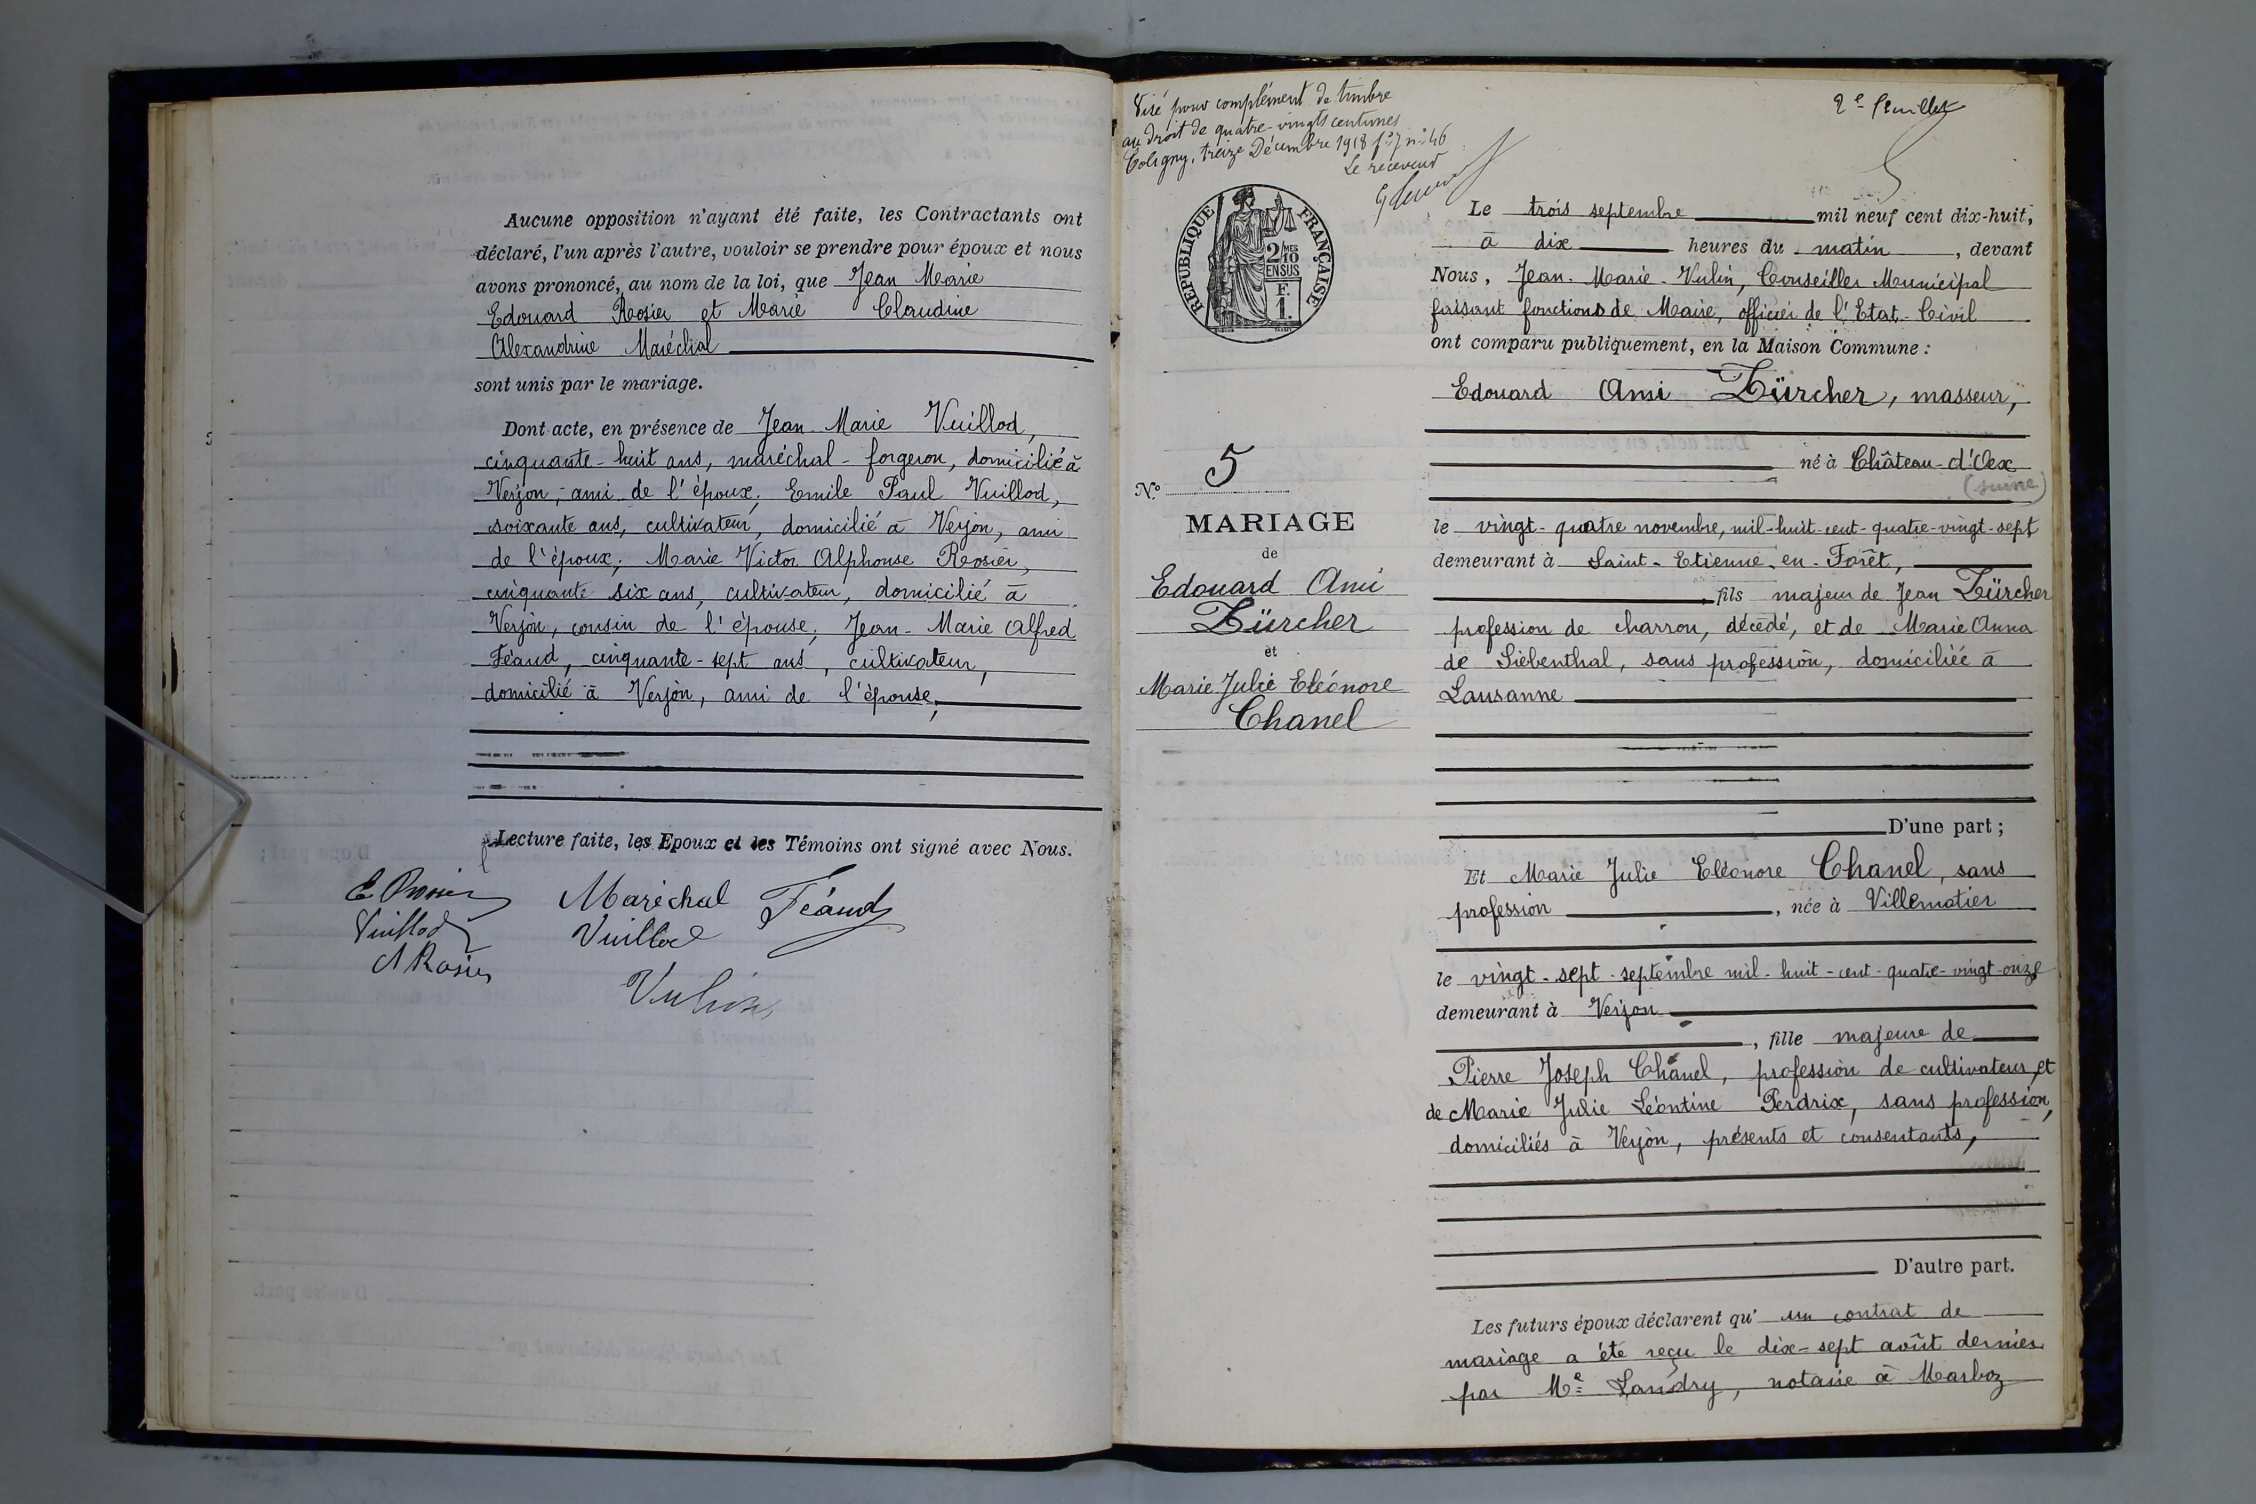 Aucune opposition n'ayant été faite, les Contractants ont
déclaré, l'un après l'autre, vouloir se prendre pour époux et nous
avons prononcé, au nom de la loi, que Jean Marie
Edouard Rosier et Marie Claudine
Alexandrine Maréchal
sont unis par le mariage.
Dont acte, en présence de Jean Marie Vuillod,
cinquante-huit ans, maréchal-forgeron, domicilié à
Verjon, ami de l'époux; Emile Paul Vuillod,
soixante ans, cultivateur, domicilié à Verjon, ami
de l'époux; Marie Victor Alphonse Rosier,
cinquante six ans, cultivateur, domicilié à
Verjon, cousin de l'épouse; Jean-Marie Alfred
Féaud, cinquante-sept ans, cultivateur,
domicilié à Verjon, ami de l'épouse,
Lecture faite, les Epoux et les Témoins ont signé avec Nous.
E Rosier Maréchal Féaud
Vuillod Vuillod
A Rosier
Vulin
Visé pour complément de timbre
au droit de quatre-vingts centimes
Coligny, treize Décembre 1918 fo 7 no 46
Le receveur
2e feuillet
RÉPUBLIQUE FRANÇAISE
2/10 MES
EN SUS
F.
1.
Le trois septembre mil neuf cent dix-huit,
à dix heures du matin, devant
Nous, Jean-Marie-Vulin, Conseiller Municipal
faisant fonctions de Maire, officier de l'Etat-Civil
ont comparu publiquement, en la Maison Commune :
Edouard Ami Zürcher, masseur,
né à Château-d'Oex
(suisse)
le vingt-quatre novembre, mil-huit-cent-quatre-vingt-sept
demeurant à Saint-Etienne-en-Forêt,
fils majeur de Jean Zürcher
profession de charron, décédé, et de Marie Anna
de Siebenthal, sans profession, domiciliée à
Lausanne
D'une part ;
N.o 5
MARIAGE
de
Edouard Ami
Zürcher
et
Marie Julie Eléonore
Chanel
Et Marie Julie Eléonore Chanel, sans
profession, née à Villemotier
le vingt-sept-septembre mil-huit-cent-quatre-vingt-onze
demeurant à Verjon
, fille majeure de
Pierre Joseph Chanel, profession de cultivateur, et
de Marie Julie Léontine Perdrix, sans profession,
domiciliés à Verjon, présents et consentants,
D'autre part.
Les futurs époux déclarent qu'un contrat de
mariage a été reçu le dix-sept août dernier
par Me Landry, notaire à Marboz